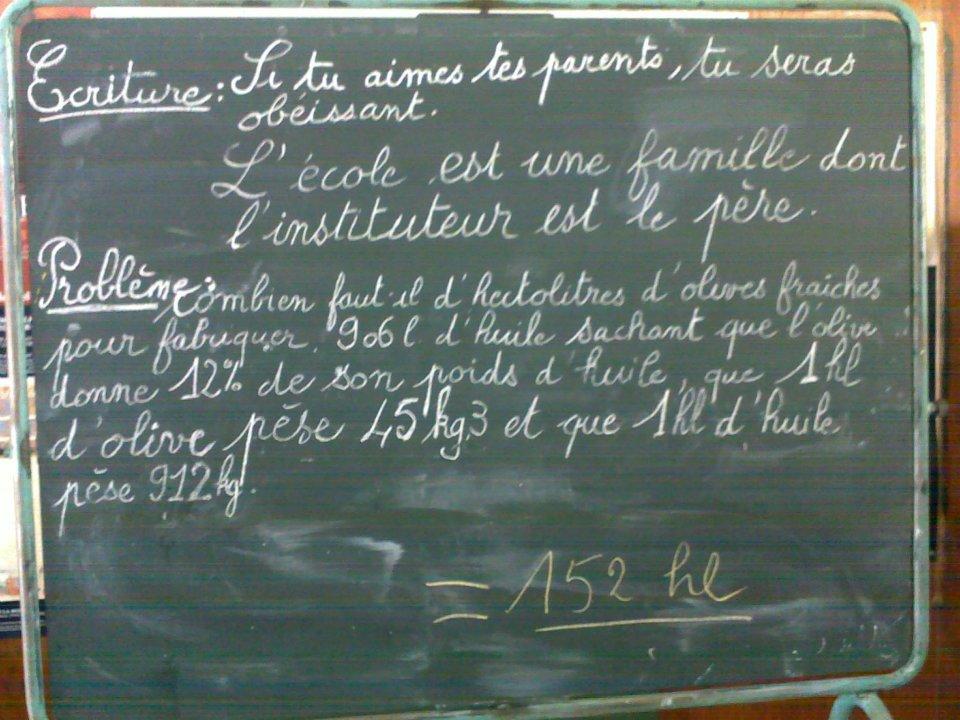 Ecriture: Si tu aimes tes parents, tu seras
obéissant.
L'école est une famille dont
l'instituteur est le père.
Problème: Combien faut-il d'hectolitres d'olives fraîches
pour fabriquer 906 l d'huile sachant que l'olive
donne 12% de son poids d'huile, que 1 hl
d'olive pèse 45 kg3 et que 1 hl d'huile
pèse 912 kg.
= 152 hl